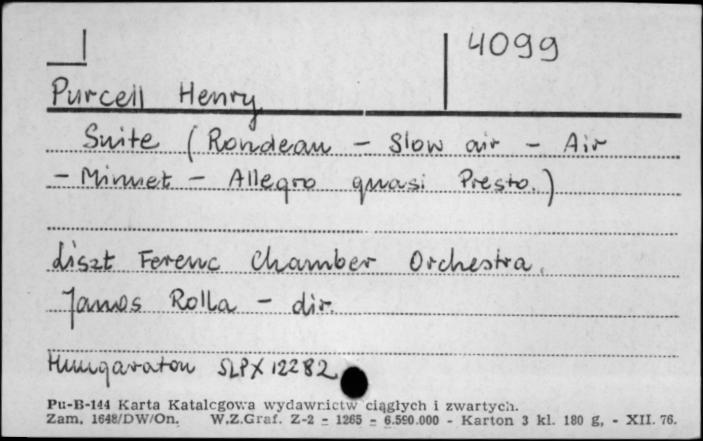 4099
Purcell Henry
Suite (Rondeau - Slow air - Air
- Minuet - Allegro quasi Presto.)
Liszt Ferenc Chamber Orchestra.
Janos Rolla - dir.
Hungaraton SLPX 12282
Pu-B-144 Karta Katalogowa wydawnictw ciągłych i zwartych.
Zam. 1648/DW/On. W.Z.Graf. Z-2 - 1265 - 6.590.000 - Karton 3 kl. 180 g, - XII. 76.